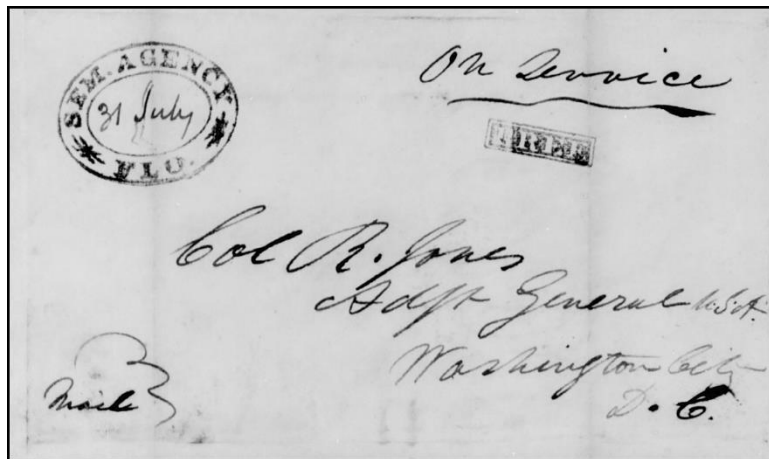 SEM. AGENCY
31 July
FLO.
On Service
FREE
Col R. Jones
Adjt General U.S.A.
Washington City
D. C.
Mail